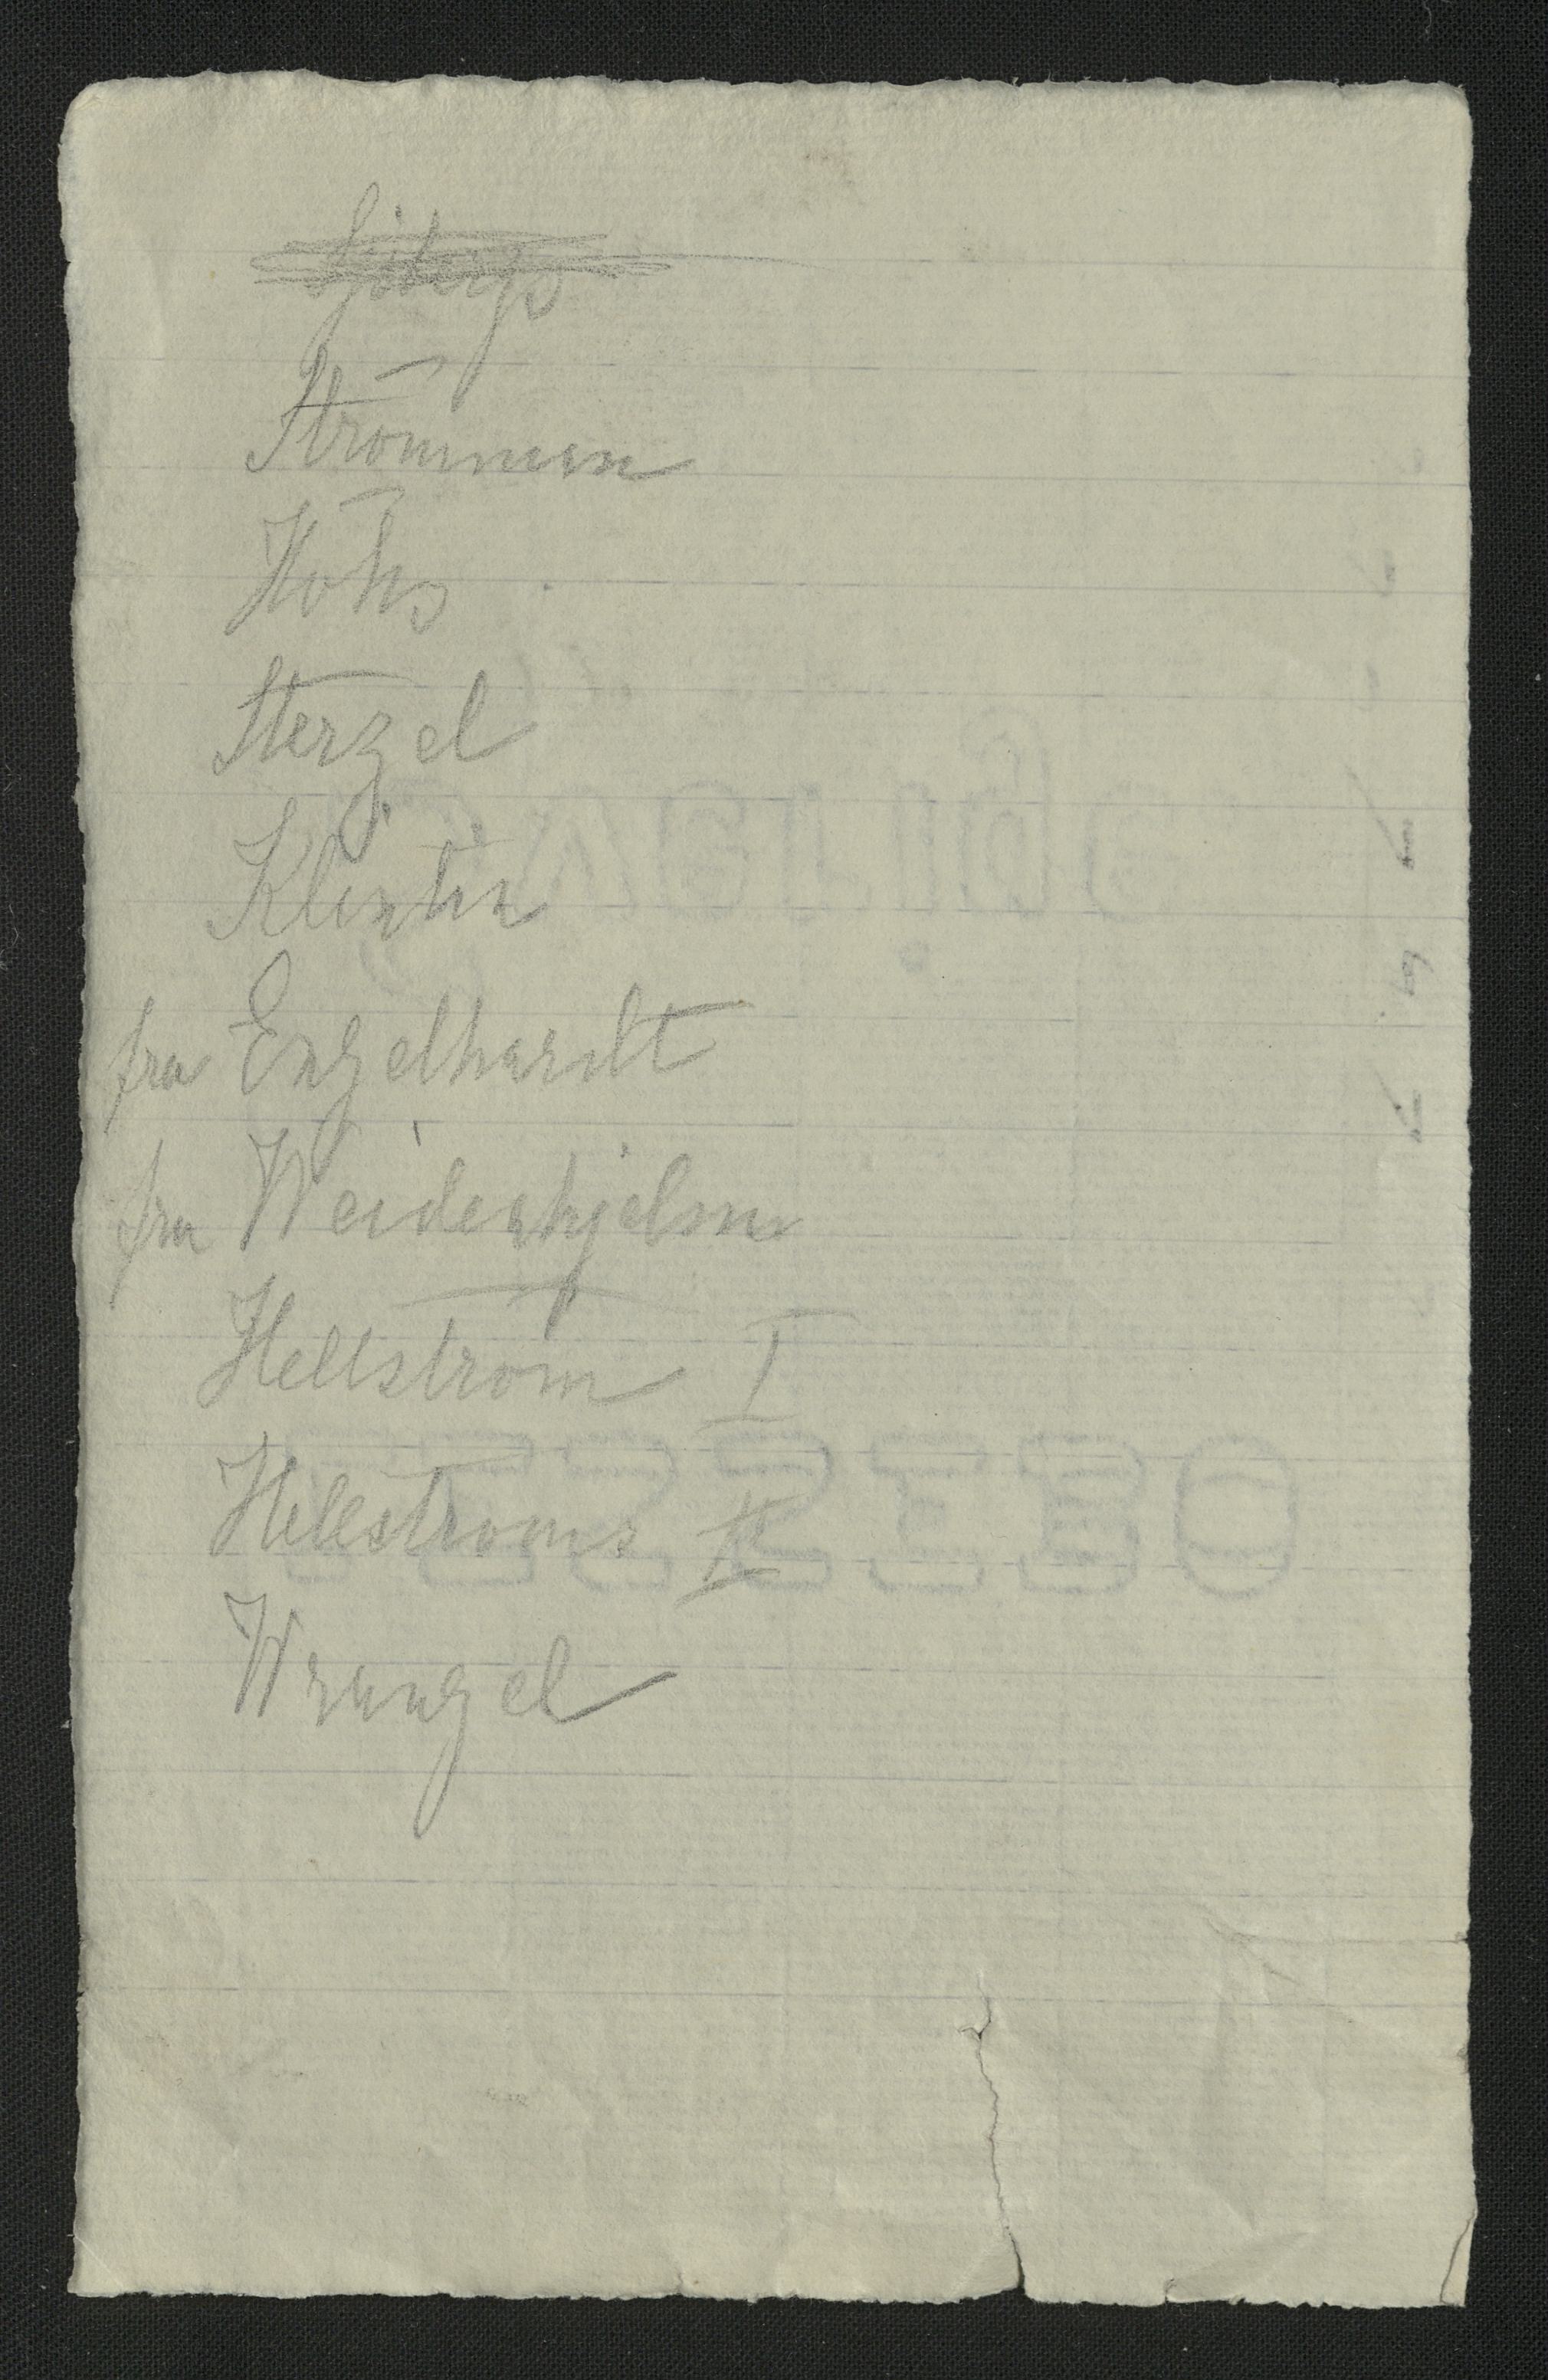 Sjöbergs
Strömman
Höhs
Sterzel
Klintin
fru Engelhardt
fru Weidenhjelm
Hellström I
Hellströms II
Wrangel